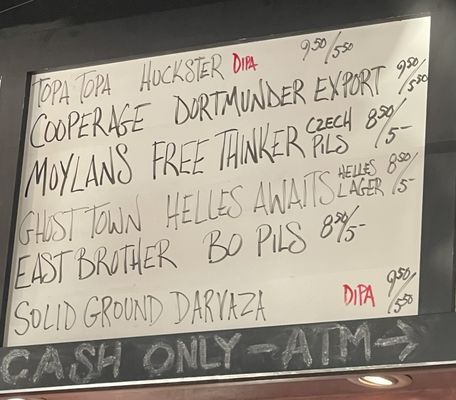 TOPA TOPA HUCKSTER DIPA 9.50/5.50
COOPERAGE DORTMUNDER EXPORT 9.50/5.50
MOYLANS FREE THINKER CZECH PILS 8.50/5-
GHOST TOWN HELLES AWAITS HELLES LAGER 8.50/5-
EAST BROTHER BO PILS 8.50/5-
SOLID GROUND DARVAZA DIPA 9.50/5.50
CASH ONLY - ATM →